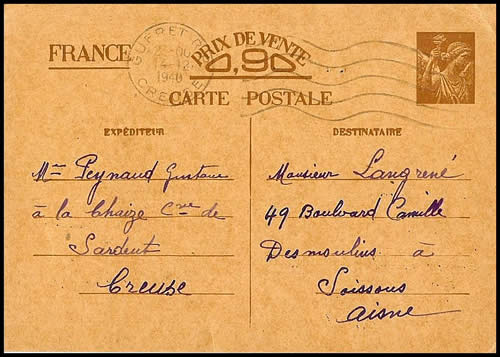 FRANCE
PRIX DE VENTE
0,90
GUÉRET
14-12
1940
CREUSE
CARTE POSTALE
EXPÉDITEUR
Mme Peynaud Gustave
à la Chaize Cne de
Sardent
Creuse
DESTINATAIRE
Monsieur Langrené
49 Boulvard Camille
Desmoulins à
Soissons
Aisne